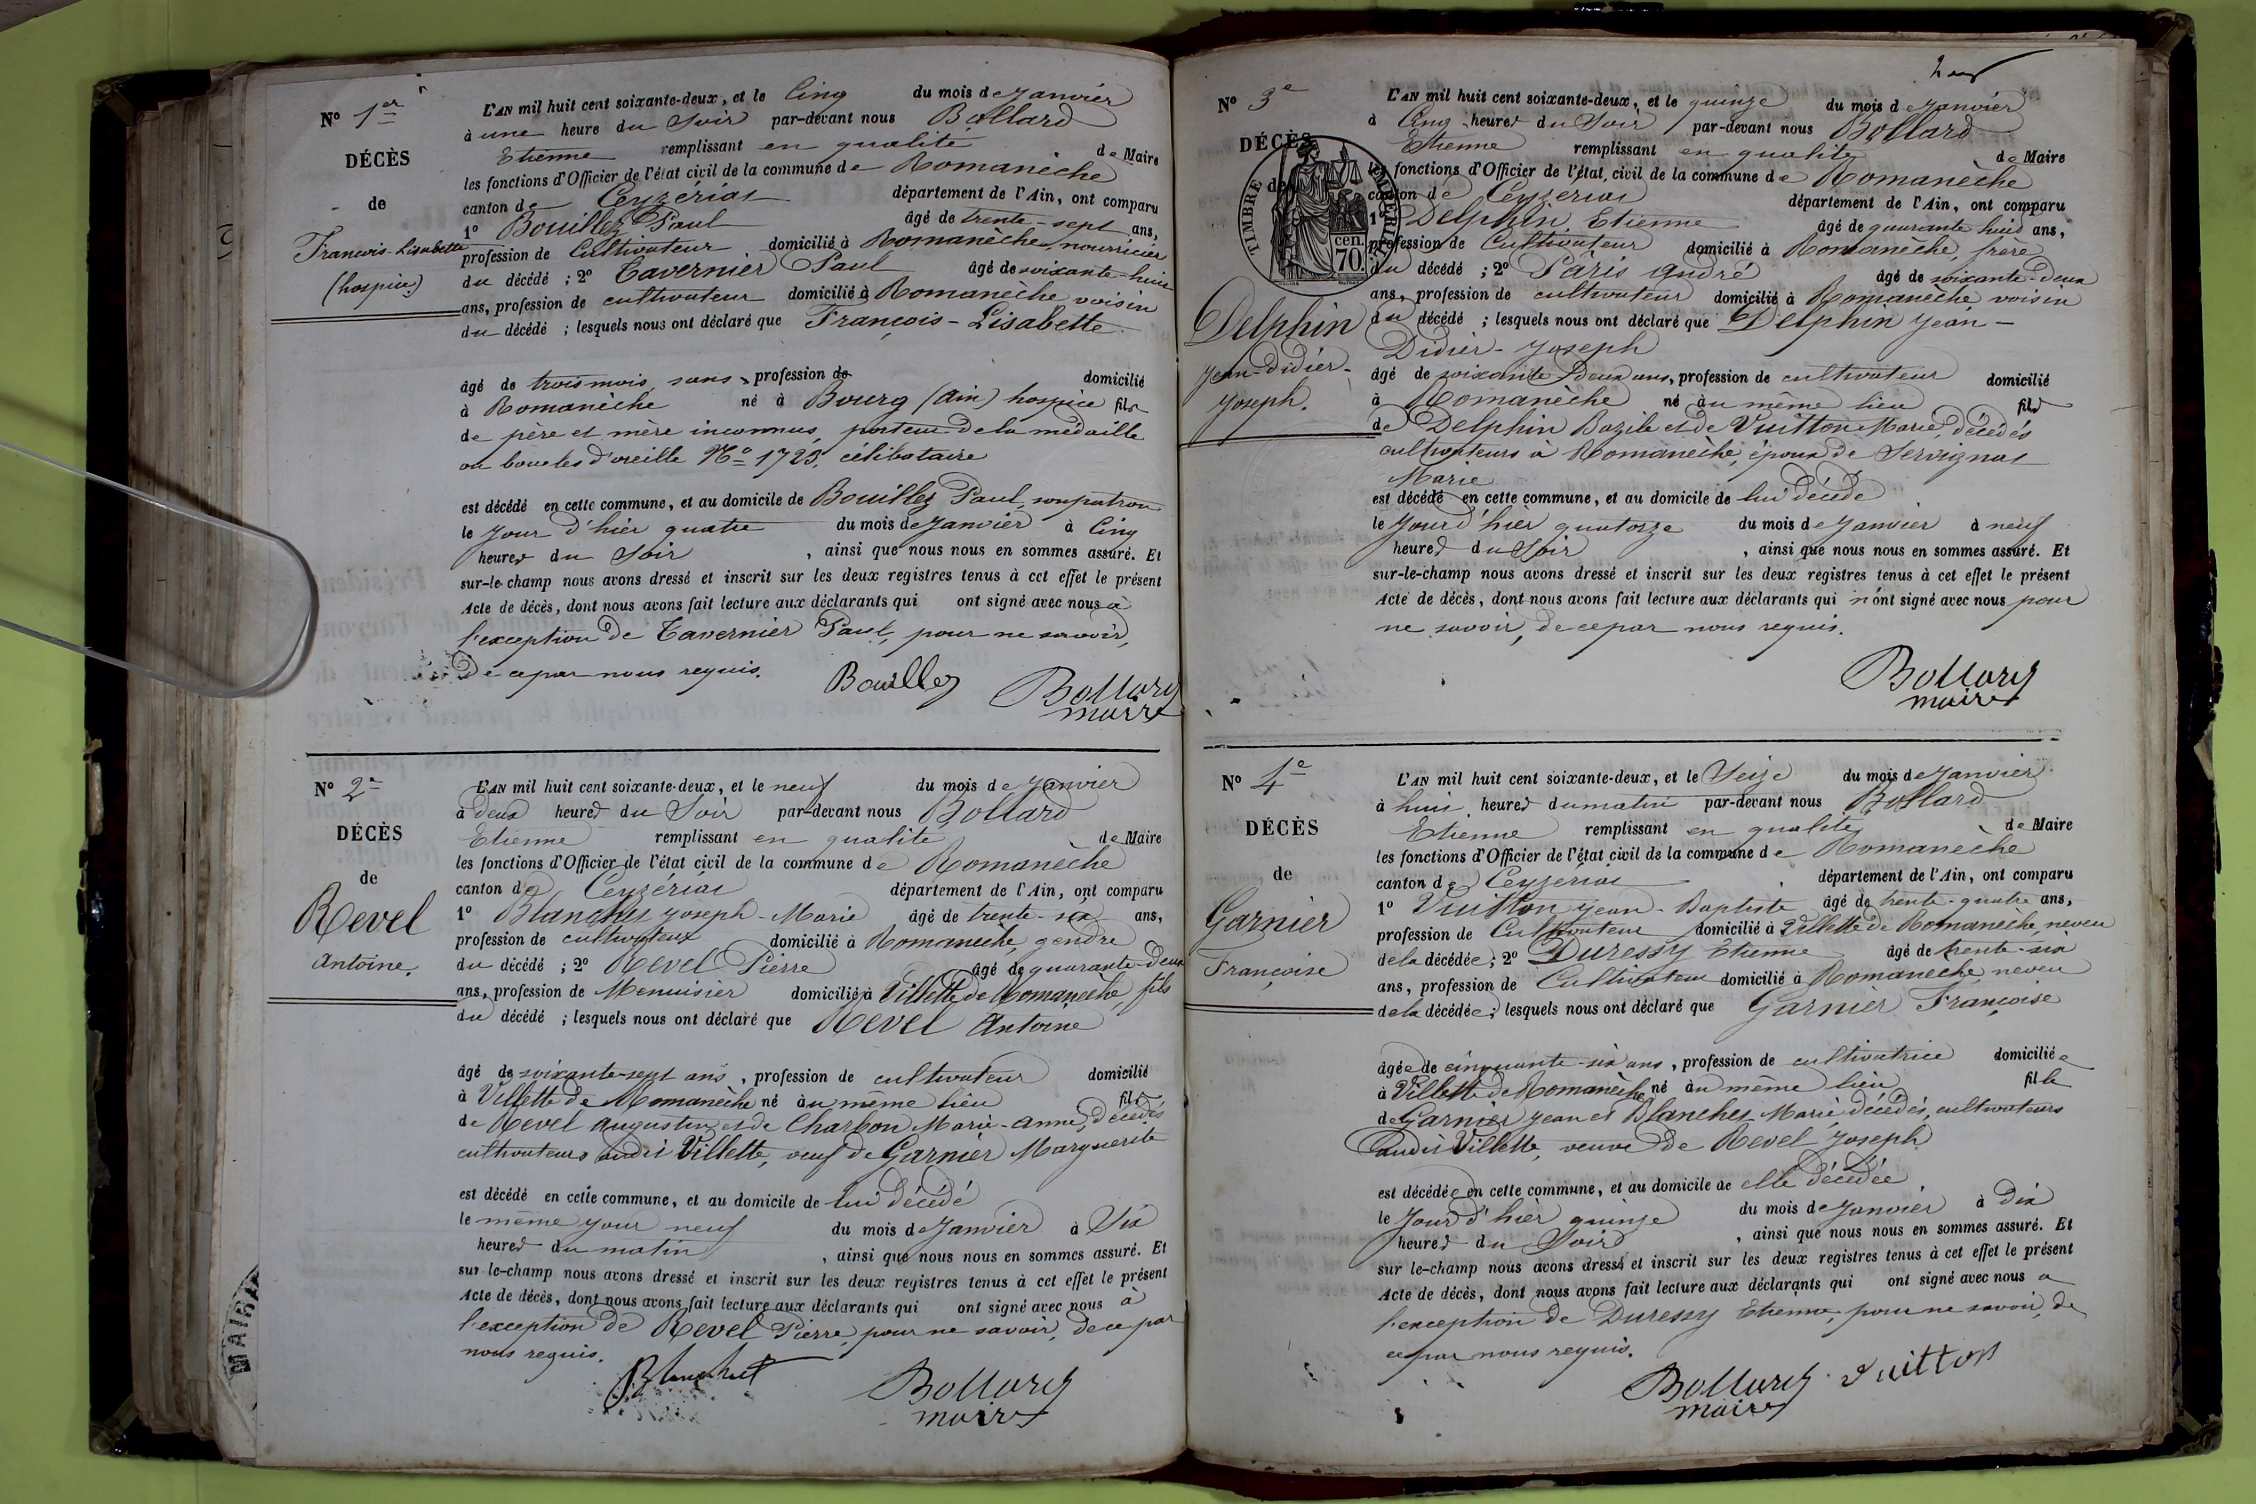 N° 1er
DÉCÈS
de
François-Lisabette
(hospice)
L'AN mil huit cent soixante-deux, et le Cinq du mois de Janvier
à une heure du Soir par-devant nous Bollard
Etienne remplissant en qualité de Maire
les fonctions d'Officier de l'état civil de la commune de Romanèche
canton de Ceyzériat département de l'Ain, ont comparu
1° Bouillez Paul âgé de trente-sept ans,
profession de Cultivateur domicilié à Romanèche, nourricier
du décédé ; 2° Tavernier Paul âgé de soixante-huit
ans, profession de cultivateur domicilié à Romanèche voisin
du décédé ; lesquels nous ont déclaré que François-Lisabette
âgé de trois mois, sans profession de domicilié
à Romanèche né à Bourg (Ain) hospice fils
de père et mère inconnus, porteur de la médaille
ou boucles d'oreille N° 1725, célibataire
est décédé en cette commune, et au domicile de Bouillez Paul, son patron
le Jour d'hier quatre du mois de Janvier à Cinq
heures du Soir , ainsi que nous nous en sommes assuré. Et
sur-le-champ nous avons dressé et inscrit sur les deux registres tenus à cet effet le présent
Acte de décès, dont nous avons fait lecture aux déclarants qui ont signé avec nous à
l'exception de Tavernier Paul, pour ne savoir,
De ce par nous requis.
Bouillez Bollard
maire
N° 2e
DÉCÈS
de
Revel
Antoine.
L'AN mil huit cent soixante-deux, et le neuf du mois de Janvier
à deux heures du Soir par-devant nous Bollard
Etienne remplissant en qualité de Maire
les fonctions d'Officier de l'état civil de la commune de Romanèche
canton de Ceyzériat département de l'Ain, ont comparu
1° Blanchet Joseph-Marie âgé de trente-six ans,
profession de cultivateur domicilié à Romanèche, gendre
du décédé ; 2° Revel Pierre âgé de quarante-deux
ans, profession de Menuisier domicilié à Villette de Romanèche, fils
du décédé ; lesquels nous ont déclaré que Revel Antoine
âgé de soixante-sept ans, profession de cultivateur domicilié
à Villette de Romanèche né au même lieu fils
de Revel Augustin et de Charbon Marie-Anne, décédés
cultivateurs audit Villette, veuf de Garnier Marguerite
est décédé en cette commune, et au domicile de lui décédé
le même jour neuf du mois de Janvier à Six
heures du matin , ainsi que nous nous en sommes assuré. Et
sur le-champ nous avons dressé et inscrit sur les deux registres tenus à cet effet le présent
Acte de décès, dont nous avons fait lecture aux déclarants qui ont signé avec nous à
l'exception de Revel Pierre, pour ne savoir, de ce par
nous requis.
Blanchet Bollard
maire
MAIRIE
N° 3e
DÉCÈS
de
TIMBRE IMPÉRIAL
cen.
70.
Delphin
Jean-Didier-
Joseph.
L'AN mil huit cent soixante-deux, et le quinze du mois de Janvier
à Cinq heures du Soir par-devant nous Bollard
Etienne remplissant en qualité de Maire
les fonctions d'Officier de l'état civil de la commune de Romanèche
canton de Ceyzeriat département de l'Ain, ont comparu
1° Delphin Etienne âgé de quarante huit ans,
profession de Cultivateur domicilié à Romanèche, frère
du décédé ; 2° Pâris André âgé de soixante-deux
ans, profession de cultivateur domicilié à Romanèche voisin
du décédé ; lesquels nous ont déclaré que Delphin Jean-
Didier-Joseph
âgé de soixante deux ans, profession de cultivateur domicilié
à Romanèche né au même lieu fils
de Delphin Bazile et de Vuitton Marie, décédés
cultivateurs à Romanèche, époux de Servignat
Marie
est décédé en cette commune, et au domicile de lui décédé
le Jour d'hier quatorze du mois de Janvier à neuf
heures du Soir , ainsi que nous nous en sommes assuré. Et
sur-le-champ nous avons dressé et inscrit sur les deux registres tenus à cet effet le présent
Acte de décès, dont nous avons fait lecture aux déclarants qui n'ont signé avec nous pour
ne savoir, de ce par nous requis.
Bollard
maire
N° 4e
DÉCÈS
de
Garnier
Françoise
L'AN mil huit cent soixante-deux, et le Seize du mois de Janvier
à huit heures du matin par-devant nous Bollard
Etienne remplissant en qualité de Maire
les fonctions d'Officier de l'état civil de la commune de Romanèche
canton de Ceyzeriat département de l'Ain, ont comparu
1° Vuitton Jean-Baptiste âgé de trente-quatre ans,
profession de Cultivateur domicilié à Villette de Romanèche, neveu
de la décédée ; 2° Duressy Etienne âgé de trente-six
ans, profession de Cultivateur domicilié à Romanèche, neveu
de la décédée ; lesquels nous ont déclaré que Garnier Françoise
âgée de cinquante-six ans, profession de cultivatrice domiciliée
à Villette de Romanèche né au même lieu fille
de Garnier Jean et Blanchet Marie, décédés, cultivateurs
audit Villette, veuve de Revel Joseph
est décédée en cette commune, et au domicile de elle décédée
le Jour d'hier quinze du mois de Janvier à Dix
heures du Soir , ainsi que nous nous en sommes assuré. Et
sur le-champ nous avons dressé et inscrit sur les deux registres tenus à cet effet le présent
Acte de décès, dont nous avons fait lecture aux déclarants qui ont signé avec nous à
l'exception de Duressy Etienne, pour ne savoir, de
ce par nous requis.
Bollard Vuitton
maire